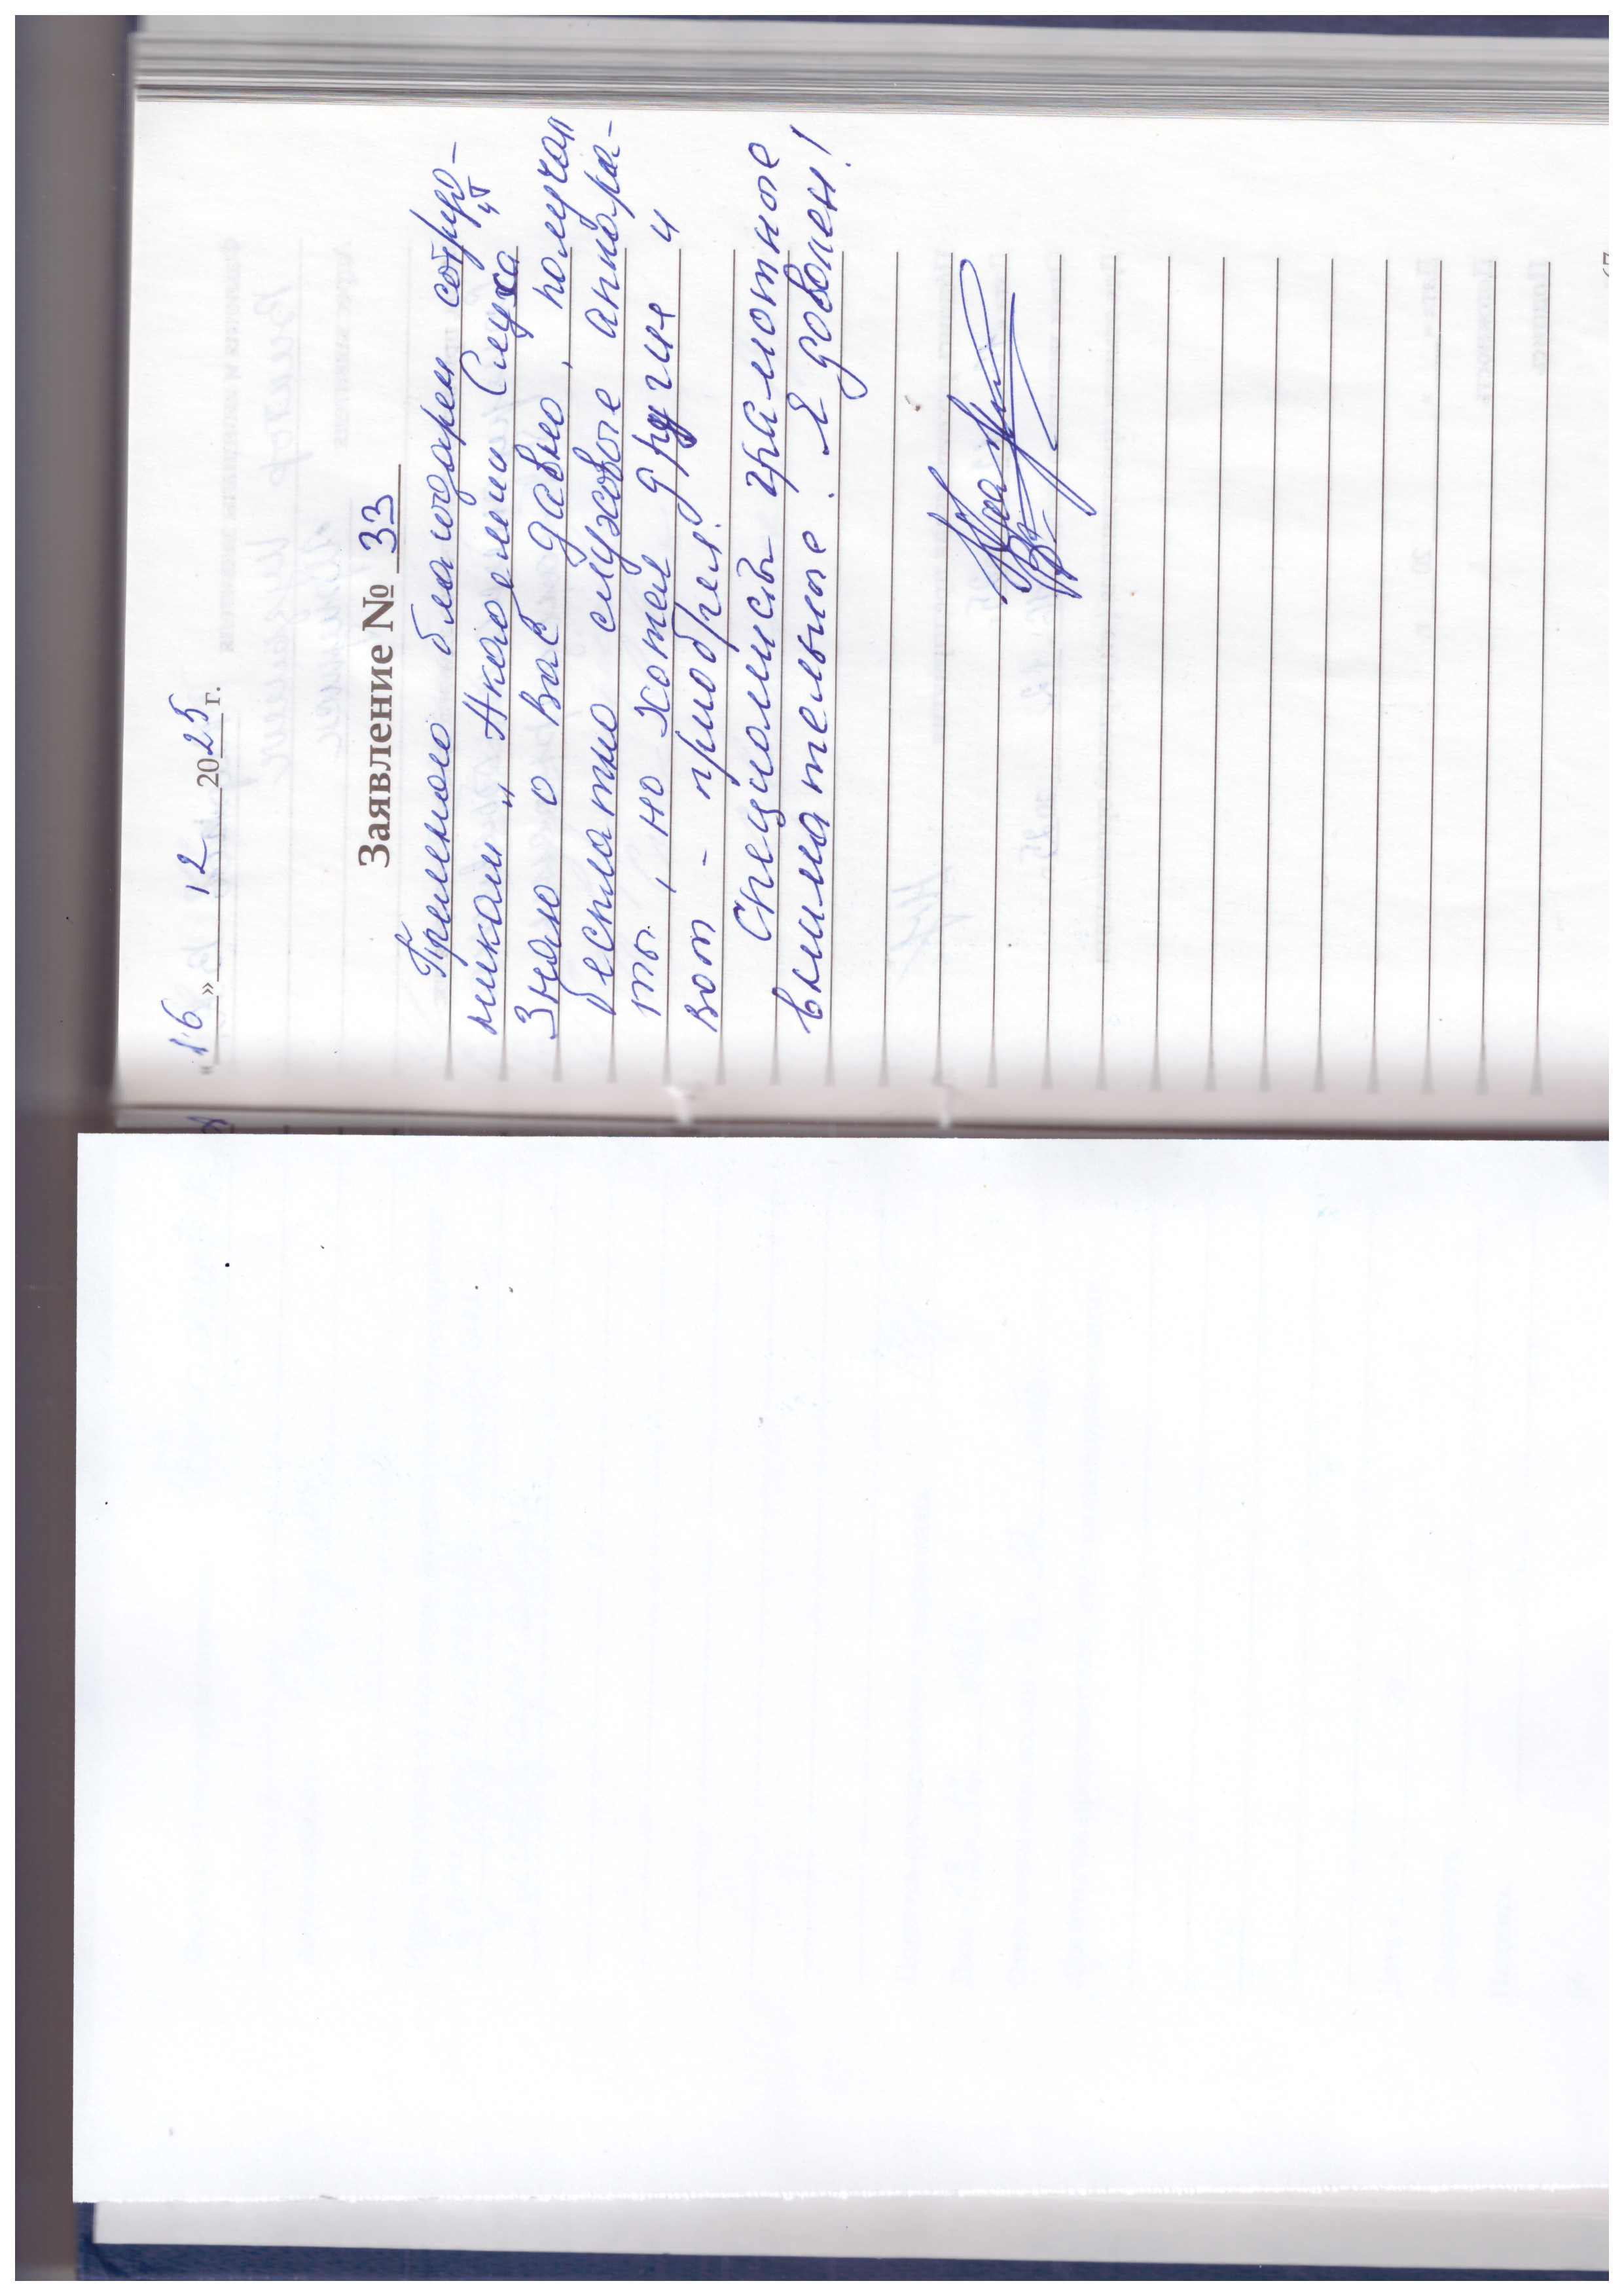 "16" 12 2025 г.
Заявление № 33
Премного благодарен сотруд-
никам "Академии Слуха"
Знаю о Вас давно, получал
бесплатно слуховые аппара-
ты, но хотел другие и
вот - приобрел!
Специалисты грамотные
внимательные. Я доволен!